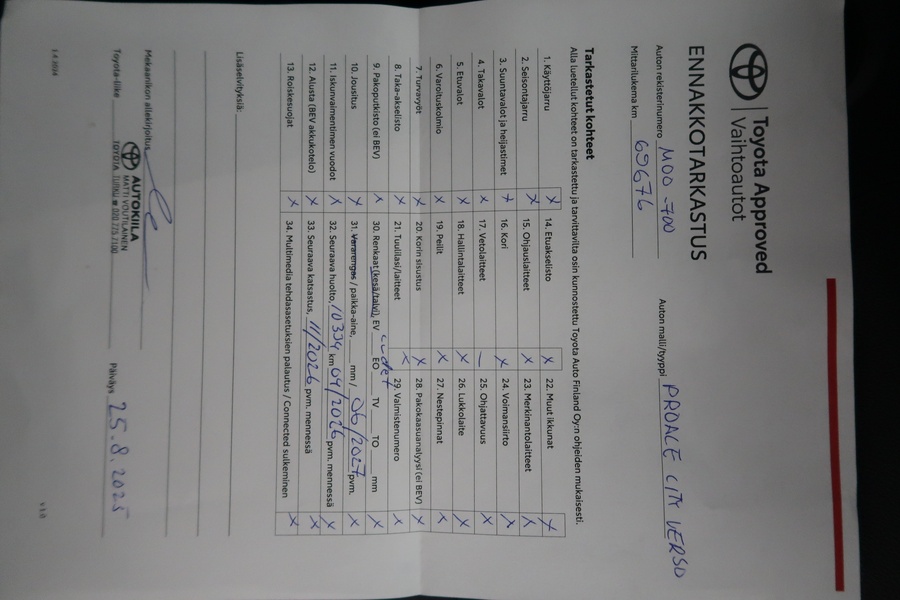 Toyota Approved
Vaihtoautot
ENNAKKOTARKASTUS
Auton rekisterinumero MOO-700
Auton malli/tyyppi PROACE CITY VERSO
Mittarilukema km 69676
Tarkastetut kohteet
Alla luetellut kohteet on tarkastettu ja tarvittavilta osin kunnostettu Toyota Auto Finland Oy:n ohjeiden mukaisesti.
1. Käyttöjarru X 14. Etuakselisto X 22. Muut ikkunat X
2. Seisontajarru X 15. Ohjauslaitteet X 23. Merkinantolaitteet X
3. Suuntavalot ja heijastimet X 16. Kori X 24. Voimansiirto X
4. Takavalot X 17. Vetolaitteet — 25. Ohjattavuus X
5. Etuvalot X 18. Hallintalaitteet X 26. Lukkolaite X
6. Varoituskolmio X 19. Peilit X 27. Nestepinnat X
7. Turvavyöt X 20. Korin sisustus X 28. Pakokaasuanalyysi (ei BEV) X
8. Taka-akselisto X 21. Tuulilasi/laitteet X 29. Valmistenumero X
9. Pakoputkisto (ei BEV) X 30. Renkaat (kesä/talvi), EV EO TV TO mm X
uudet
10. Jousitus X 31. Vararengas / paikka-aine, mm / 06/2027 pvm. X
11. Iskunvaimentimen vuodot X 32. Seuraava huolto, km 04/2026 pvm. mennessä X
12. Alusta (BEV akkukotelo) X 33. Seuraava katsastus, 11/2026 pvm. mennessä X
13. Roiskesuojat X 34. Multimedia tehdasasetuksien palautus / Connected sulkeminen X
Lisäselvityksiä:
Mekaanikon allekirjoitus
AUTOKIILA
MATTI VOUTILAINEN
TOYOTA TURKU ☎ 020 775 7100
Toyota-liike
Päiväys 25.8.2025
v 1.0